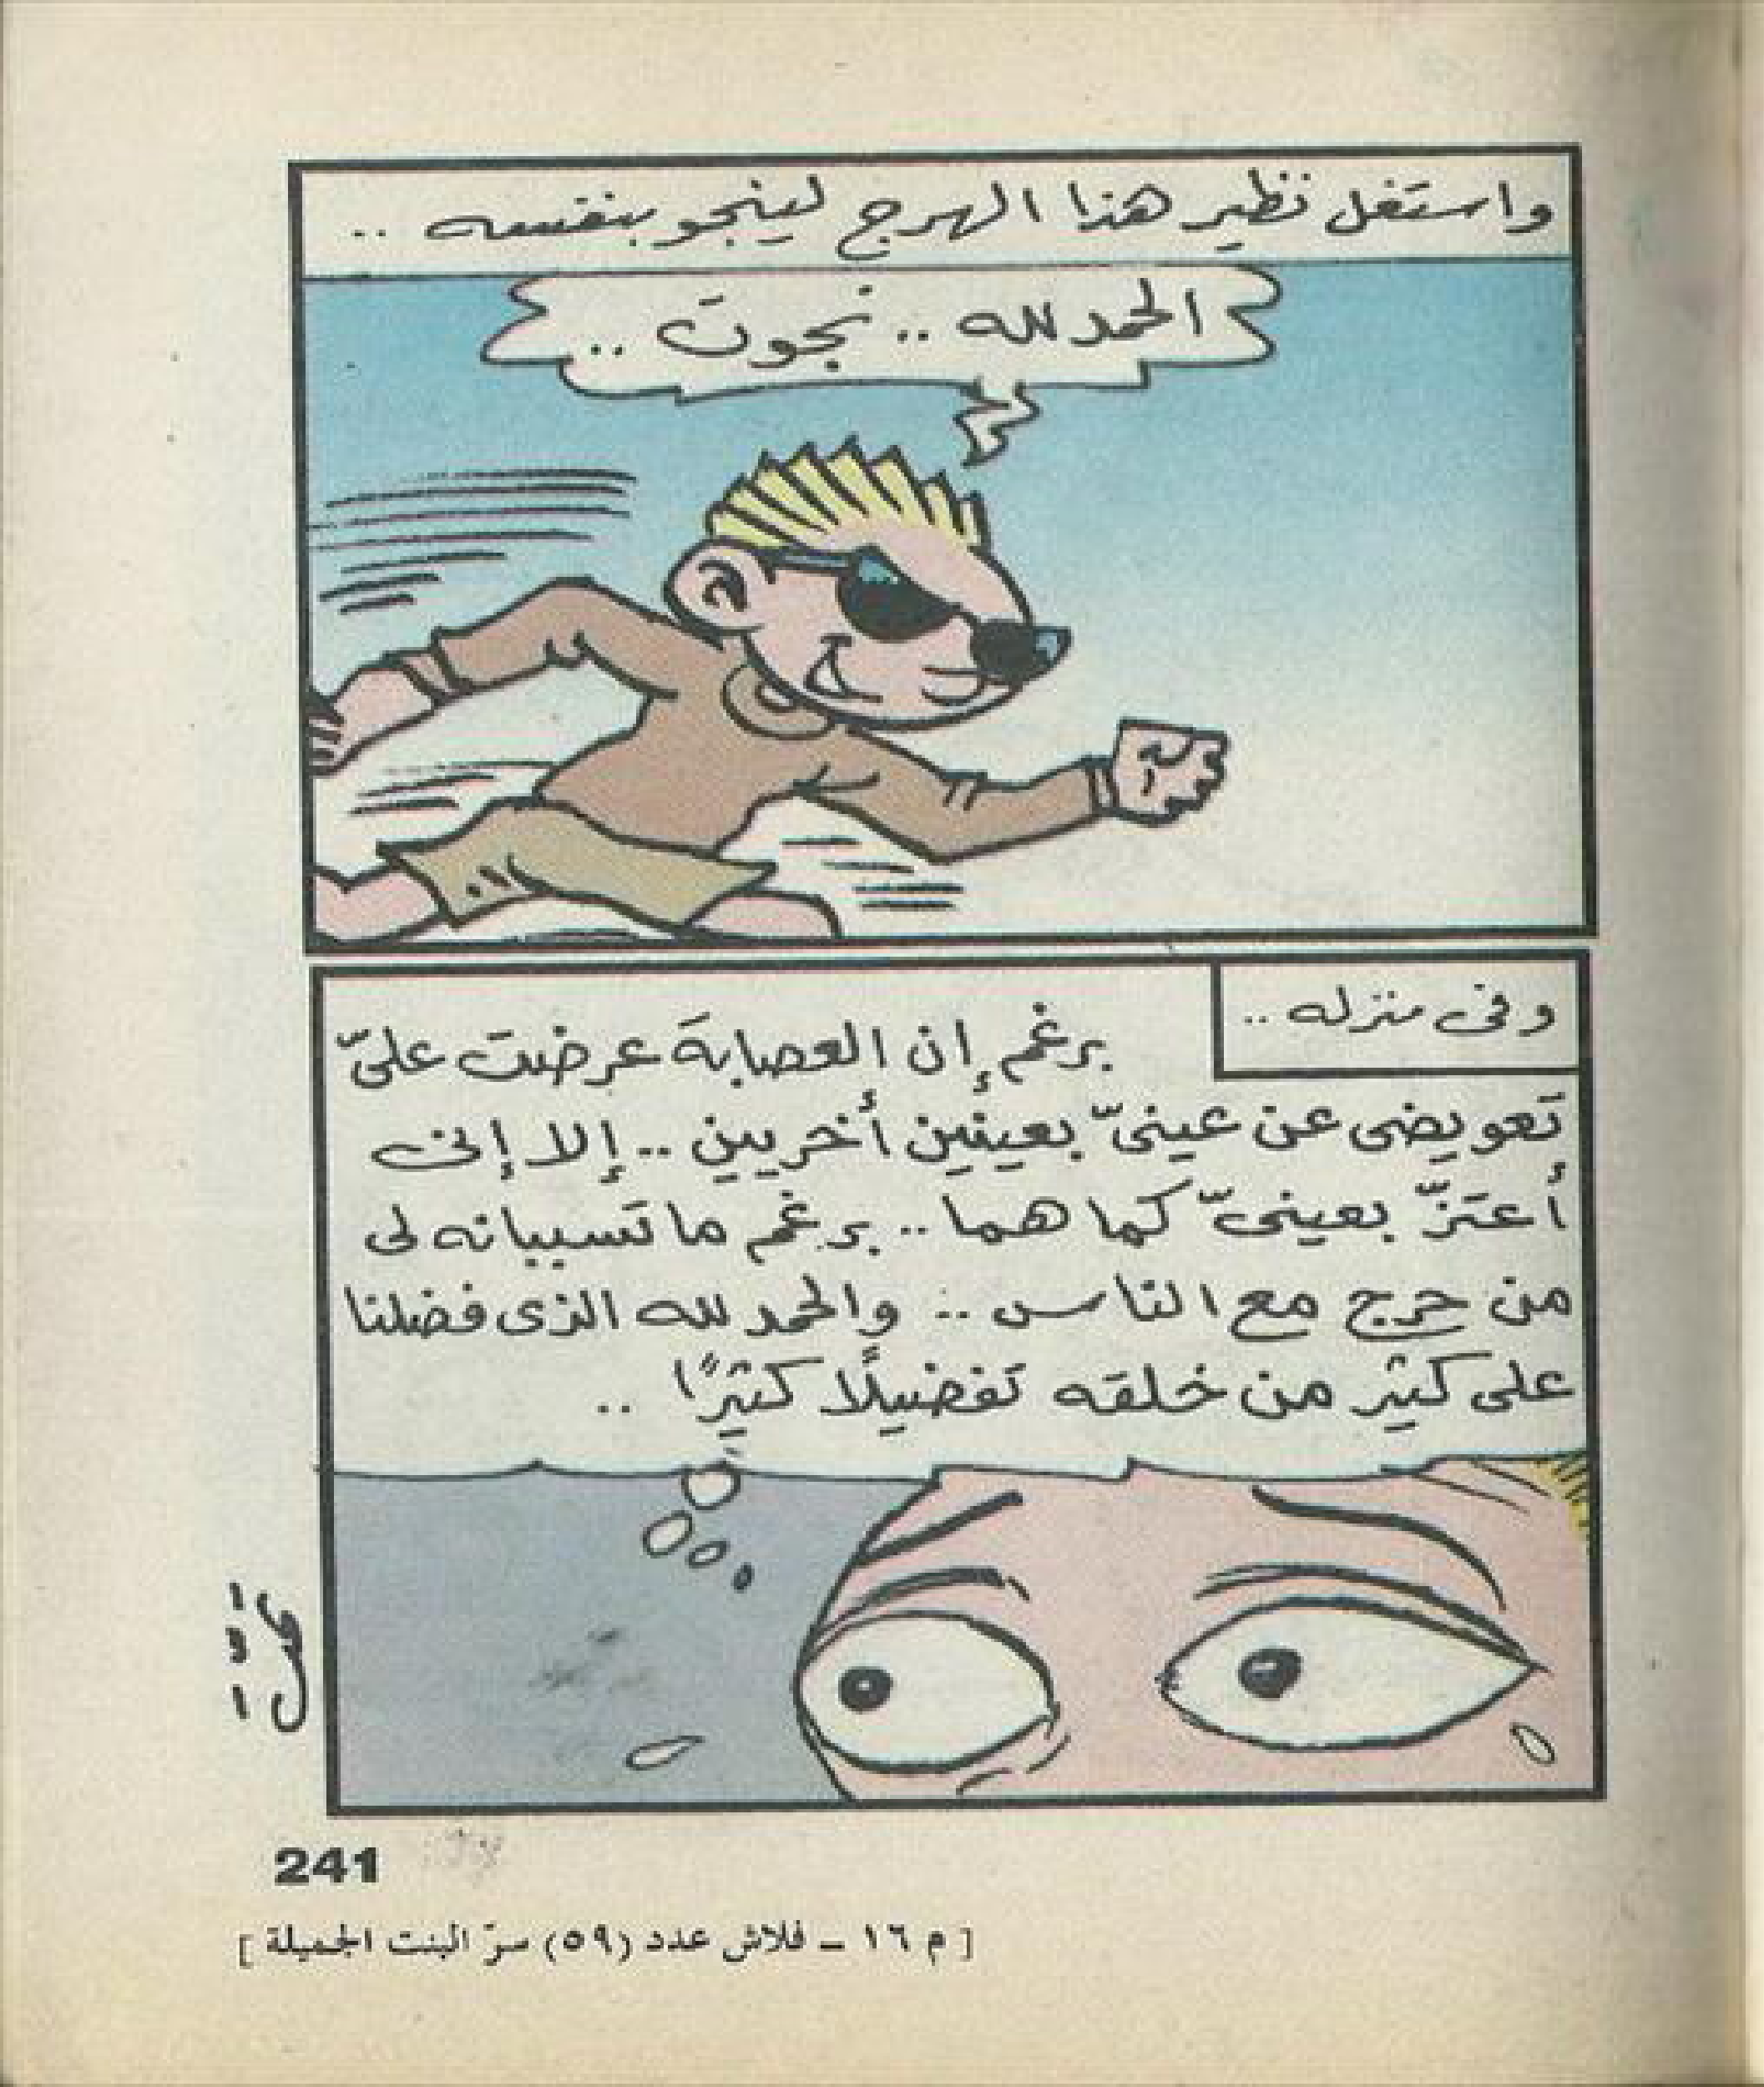 واستغل نظير هذا الهرج لينجو بنفسه ..
الحمد لله .. نجوت ..
وفى منزله ..
برغم إن العصابة عرضت علىّ
تعويضى عن عينىّ بعينين أخريين .. إلا إنى
أعتزّ بعينىّ كما هما .. برغم ما تسببانه لى
من حرج مع الناس .. والحمد لله الذى فضلنا
على كثير من خلقه تفضيلًا كثيرًا ..
تمت
241
[ م ١٦ ــ فلاش عدد (٥٩) سرّ البنت الجميلة ]